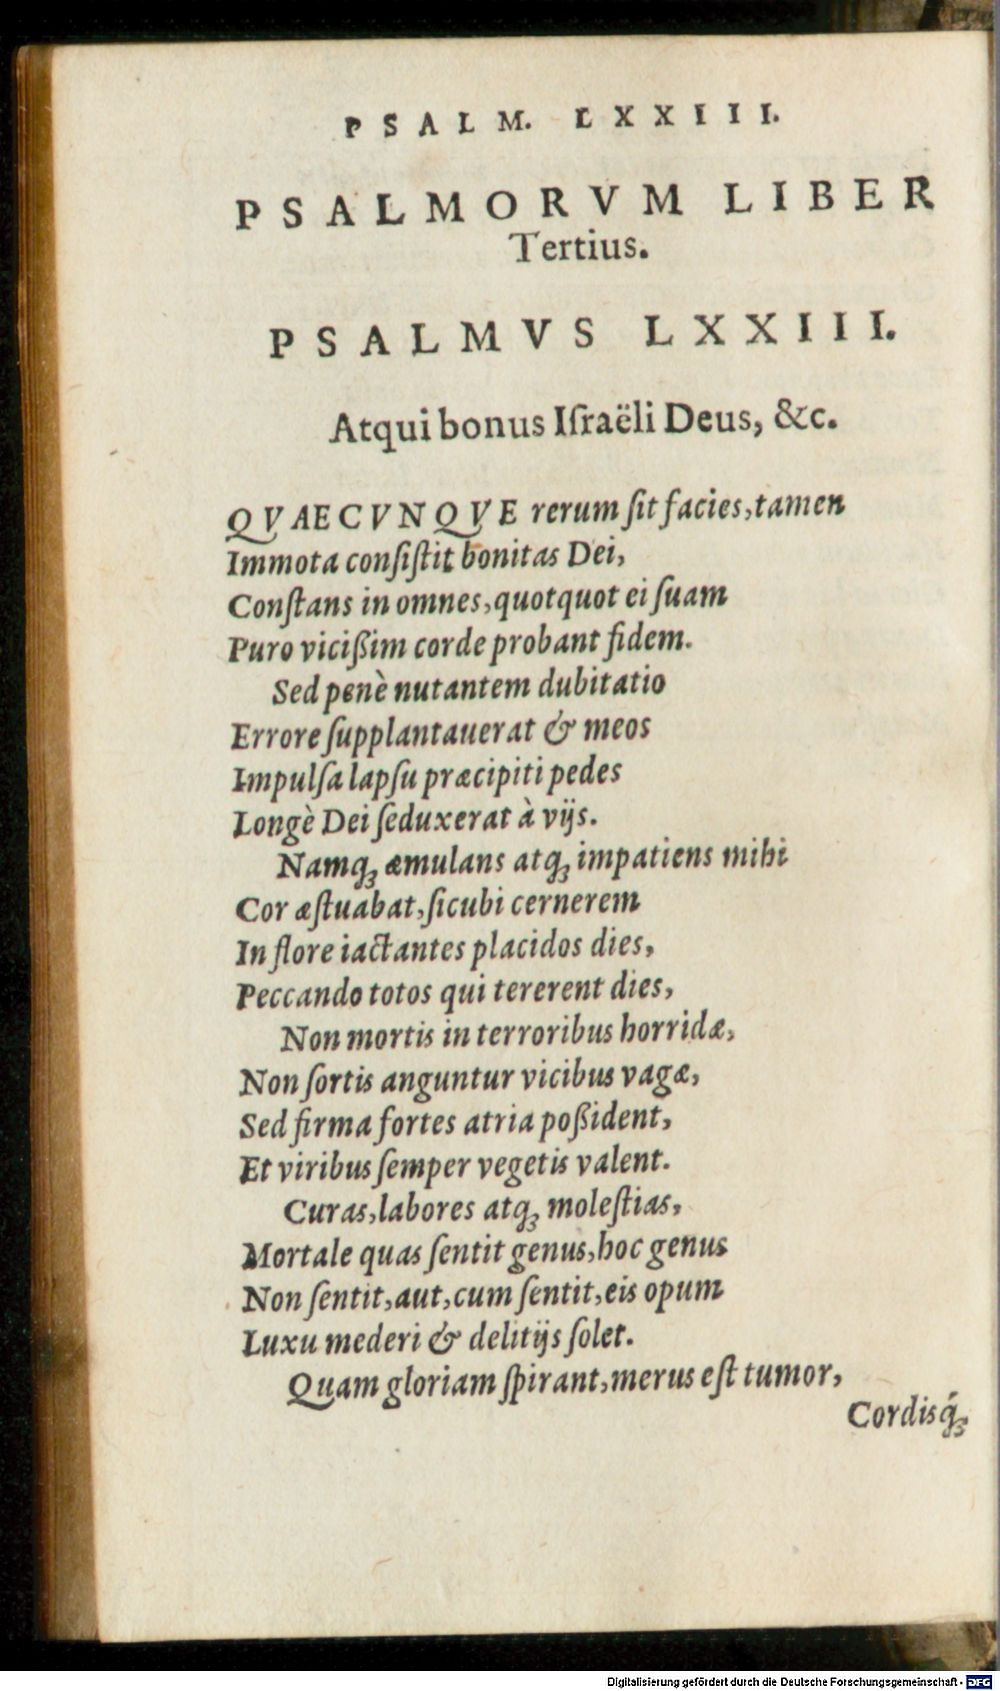 PSALM. LXXIII.
PSALMORVM LIBER
Tertius.
PSALMVS LXXIII.
Atqui bonus Iſraëli Deus, &c.
QVAECVNQVE rerum ſit facies, tamen
Immota conſiſtit bonitas Dei,
Conſtans in omnes, quotquot ei ſuam
Puro vicißim corde probant fidem.
Sed penè nutantem dubitatio
Errore ſupplantauerat & meos
Impulſa lapſu præcipiti pedes
Longè Dei ſeduxerat à vijs.
Namq́ꝫ æmulans atqꝫ impatiens mihi
Cor æſtuabat, ſicubi cernerem
In flore iactantes placidos dies,
Peccando totos qui tererent dies,
Non mortis in terroribus horridæ,
Non ſortis anguntur vicibus vagæ,
Sed firma fortes atria poßident,
Et viribus ſemper vegetis valent.
Curas, labores atqꝫ moleſtias,
Mortale quas ſentit genus, hoc genus
Non ſentit, aut, cum ſentit, eis opum
Luxu mederi & delitijs ſolet.
Quam gloriam ſpirant, merus eſt tumor,
Cordisq́ꝫ
Digitalisierung gefördert durch die Deutsche Forschungsgemeinschaft - DFG